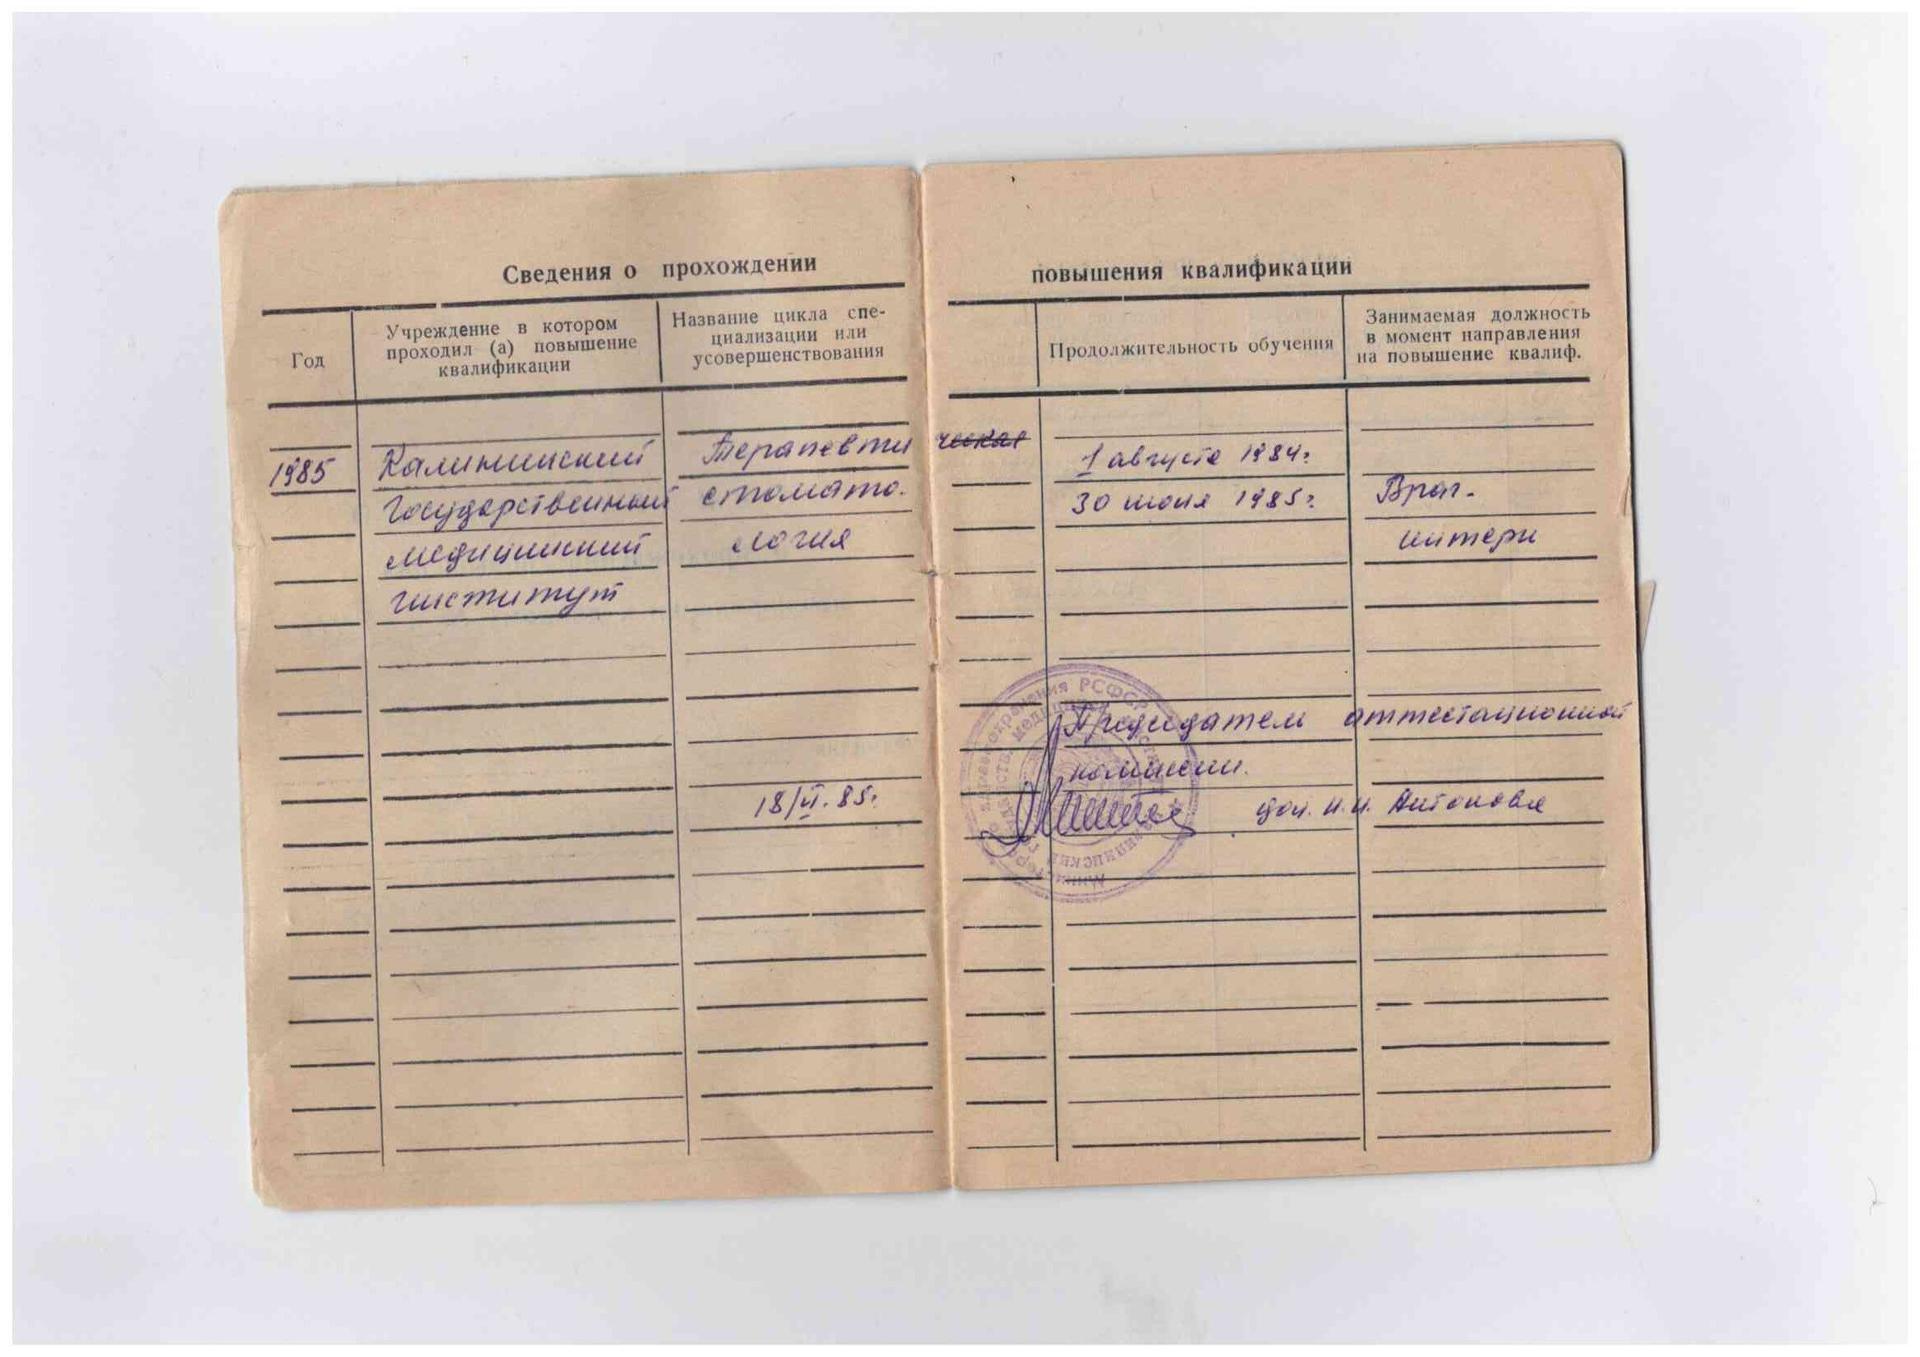 Сведения о прохождении
повышения квалификации
Год
Учреждение в котором
проходил (а) повышение
квалификации
Название цикла спе-
циализации или
усовершенствования
Продолжительность обучения
Занимаемая должность
в момент направления
на повышение квалиф.
1985
Калининский
Государственный
медицинский
институт
Терапевтическая
стомато-
логия
1 августа 1984г.
30 июня 1985г.
Врач-
интерн
Председатель аттестационной
комиссии.
18/VI.85г.
доц. Н.И. Антонова
Министерство здравоохранения РСФСР